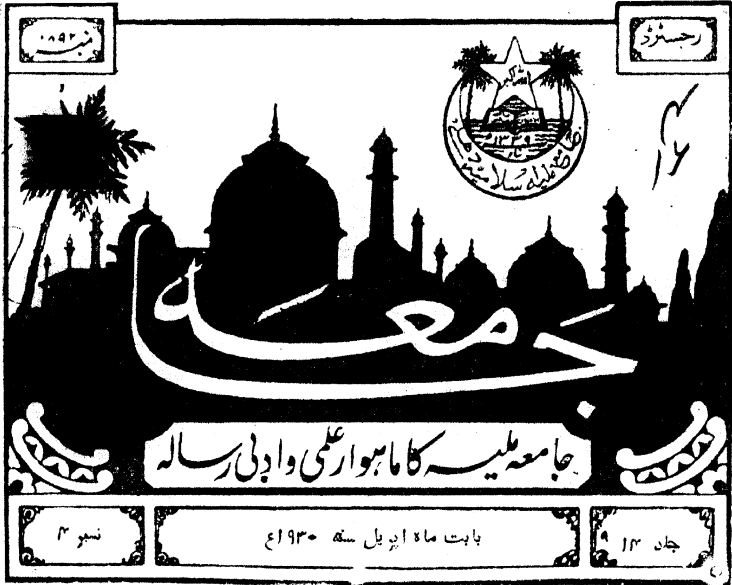 رجسٹرڈ
نمبر
اللہ اکبر
۱۳۳۹
جامعہ ملیہ اسلامیہ دہلی
جامعہ
جامعہ ملیہ کا ماہوار علمی و ادبی رسالہ
جلد ۱۴
بابت ماہ اپریل سنہ ۱۹۳۰ع
نمبر ۴